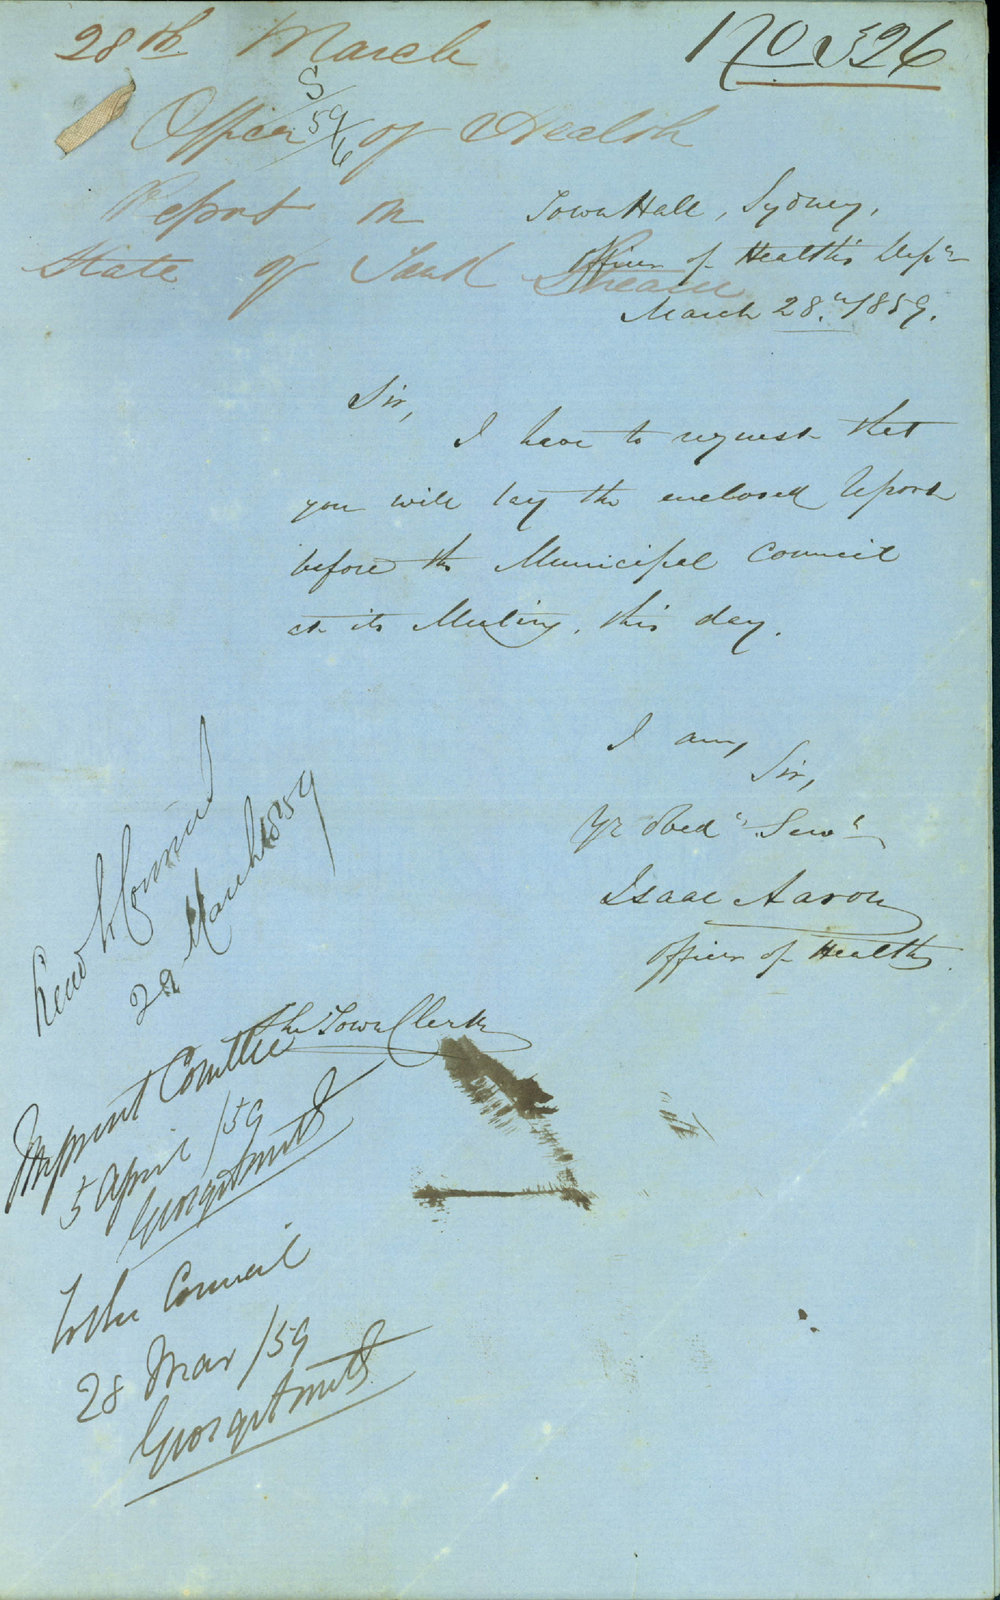 28th March
No 326
S/59/6
Officer of Health
Report on
State of Tank Stream
Town Hall, Sydney,
Officer of Health's Dept
March 28th 1859.
Sir,
I have to request that
you will lay the enclosed Report
before the Municipal Council
at its Meeting, this day.
I am,
Sir,
Yr Obedt Servt
Isaac Aaron
Officer of Health
The Town Clerk
Council
28 March 1859
Imprvmt Comttee
5 April /59
George Smith
To the Council
28 Mar /59
George Smith